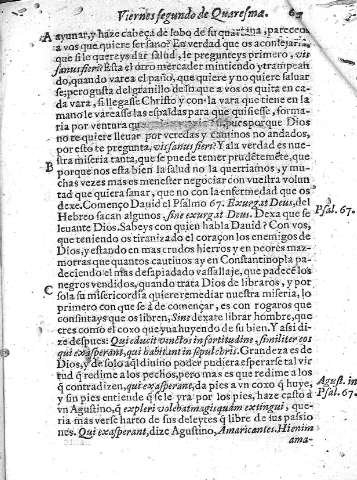 Viernes segundo de Quaresma. 63
A ayunar, y haze cabeça de lobo de su quartana, pareceos
a vos que quiere ser sano? En verdad que os aconsejaria,
que si le quereys dar salud, le pregunteys primero, vis
sanus fieri? Esta el duro mercader mintiendo y trampeando,
quando varea el paño, que quiere y no quiere saluar
se; pero gusta del granillo desso que a vos os quita en cada
vara, si llegasse Christo y con la vara que tiene en la
mano le vareasse las espaldas para que quisiesse, formaria
por ventura pues porque Dios
no requiere lleuar por veredas y caminos no andados,
por esto te pregunta, vis sanus fieri? Y a la verdad es nuestra
miseria tanta, que se puede temer prudētemēte, que
B porque nos esta bien la salud no la querriamos, y muchas
vezes mas es menester negociar con vuestra voluntad
que quiera sanar, que no con la enfermedad que os
dexe. Començo Dauid el Psalmo 67. Exurgat Deus, del
Hebreo sacan algunos. Sine exurgat Deus. Dexa que se
leuante Dios. Sabeys con quien habla Dauid? Con vos,
que teniendo os tiranizado el coraçon los enemigos de
Dios, y estando en mas crudos hierros y en peores mazmorras
que quantos cautiuos ay en Constantinopla padeciendo
el mas desapiadado vassallaje, que padece los
C negros vendidos, quando trata Dios de libraros, y por
sola su misericordia quiere remediar nuestra miseria, lo
primero con que se á de començar, es con rogaros que
consintays que os libren, Sine dexate librar hombre, que
eres como el coxo que va huyendo de su bien. Y assi dize
despues: Qui educit vinctos in fortitudine, similiter eos
qui exasperant, qui habitant in sepulchris. Grandeza es de
Dios, y de solo aql diuino poder pudiera esperarse tal virtud
q̄ redime a los pechos, pero mas es que redime a los
q̄ contradizen, qui exasperant, da pies a vn coxo q̄ huye,
y sin pies entiende q̄ se le yra por los pies, haze casto à
vn Agustino, q̄ expleri volebat magis quàm extingui, queria
mas verse harto de sus deleytes q̄ libre de sus passiones.
Qui exasperant, dize Agustino, Amaricantes. Hienim
ama-
Psal. 67.
Agust. in
Psal. 67.